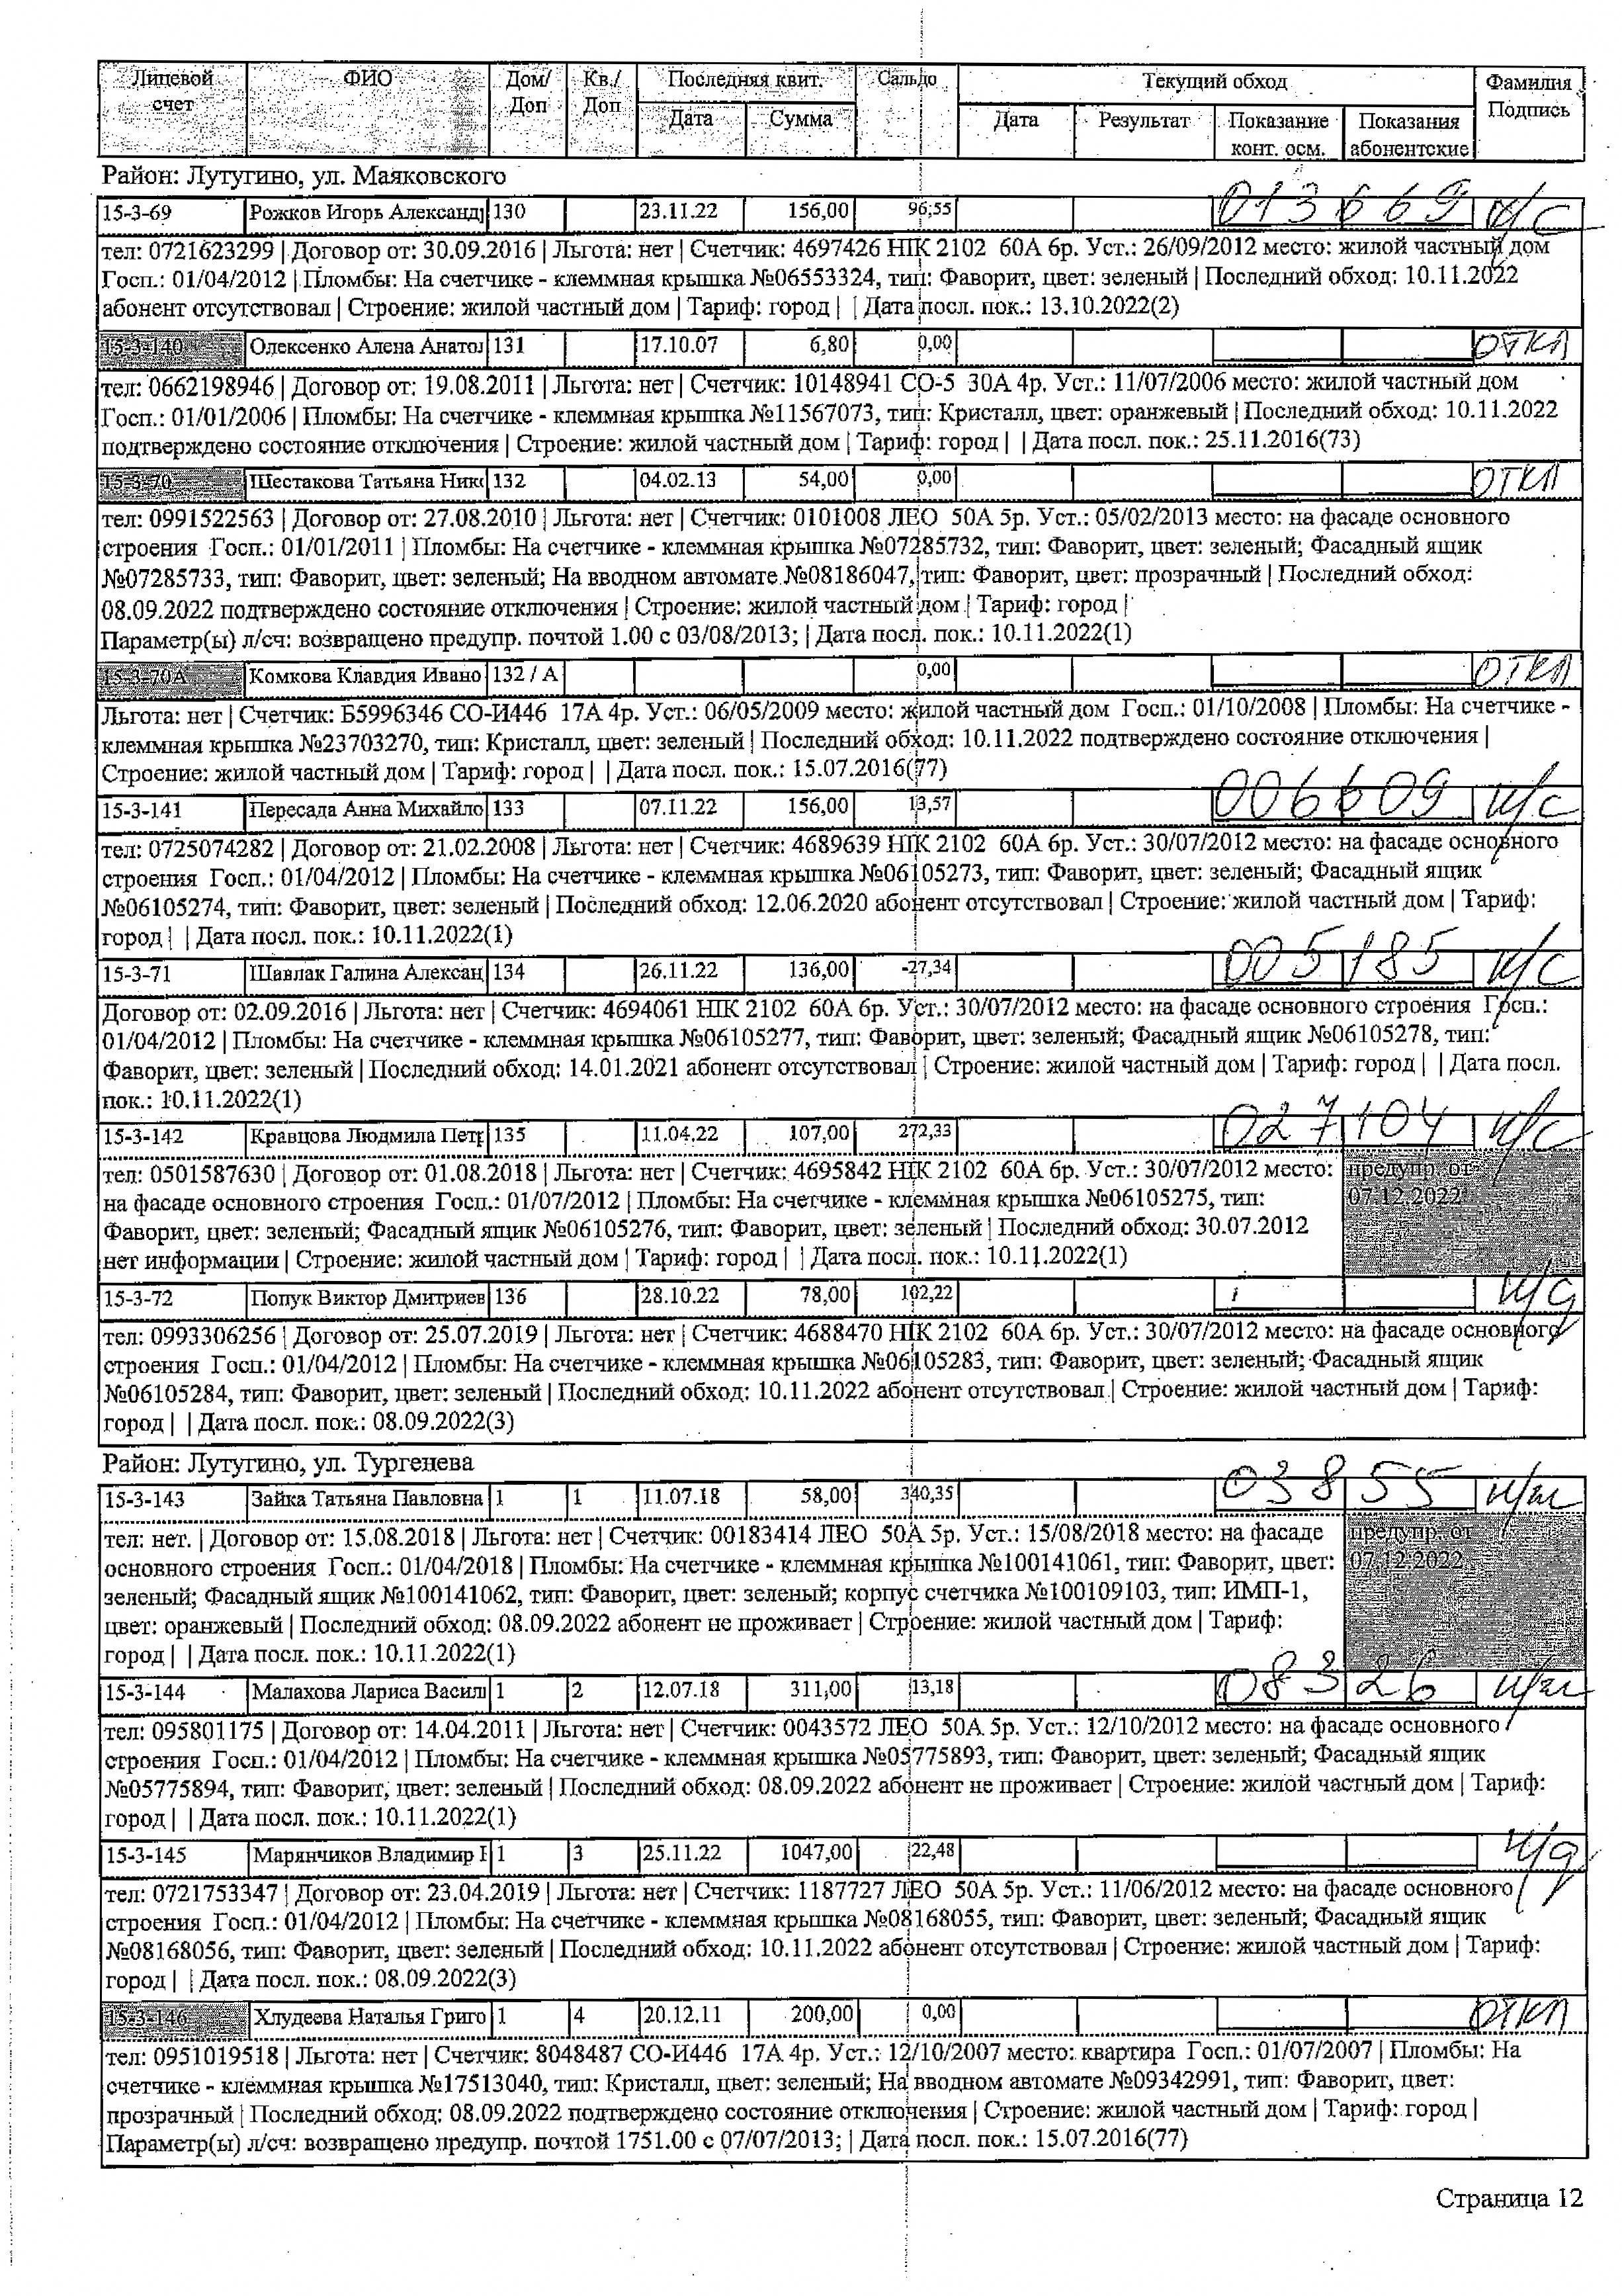 Лицевой счет ФИО Дом/Доп Кв./Доп Последняя квит. Сальдо Текущий обход Фамилия Подпись
Дата Сумма Дата Результат Показание конт. осм. Показания абонентские
Район: Лутугино, ул. Маяковского
15-3-69 Рожков Игорь Александр 130 23.11.22 156,00 96,55 013669 н/с
тел: 0721623299 | Договор от: 30.09.2016 | Льгота: нет | Счетчик: 4697426 НІК 2102 60А 6р. Уст.: 26/09/2012 место: жилой частный дом
Госп.: 01/04/2012 | Пломбы: На счетчике - клеммная крышка №06553324, тип: Фаворит, цвет: зеленый | Последний обход: 10.11.2022
абонент отсутствовал | Строение: жилой частный дом | Тариф: город | | Дата посл. пок.: 13.10.2022(2)
15-3-140 Олексенко Алена Анатол 131 17.10.07 6,80 0,00 ОТКЛ
тел: 0662198946 | Договор от: 19.08.2011 | Льгота: нет | Счетчик: 10148941 СО-5 30А 4р. Уст.: 11/07/2006 место: жилой частный дом
Госп.: 01/01/2006 | Пломбы: На счетчике - клеммная крышка №11567073, тип: Кристалл, цвет: оранжевый | Последний обход: 10.11.2022
подтверждено состояние отключения | Строение: жилой частный дом | Тариф: город | | Дата посл. пок.: 25.11.2016(73)
15-3-70 Шестакова Татьяна Ник 132 04.02.13 54,00 0,00 ОТКЛ
тел: 0991522563 | Договор от: 27.08.2010 | Льгота: нет | Счетчик: 0101008 ЛЕО 50А 5р. Уст.: 05/02/2013 место: на фасаде основного
строения Госп.: 01/01/2011 | Пломбы: На счетчике - клеммная крышка №07285732, тип: Фаворит, цвет: зеленый; Фасадный ящик
№07285733, тип: Фаворит, цвет: зеленый; На вводном автомате №08186047, тип: Фаворит, цвет: прозрачный | Последний обход:
08.09.2022 подтверждено состояние отключения | Строение: жилой частный дом | Тариф: город |
Параметр(ы) л/сч: возвращено предупр. почтой 1.00 с 03/08/2013; | Дата посл. пок.: 10.11.2022(1)
15-3-70А Комкова Клавдия Ивано 132 / А 0,00 ОТКЛ
Льгота: нет | Счетчик: Б5996346 СО-И446 17А 4р. Уст.: 06/05/2009 место: жилой частный дом Госп.: 01/10/2008 | Пломбы: На счетчике -
клеммная крышка №23703270, тип: Кристалл, цвет: зеленый | Последний обход: 10.11.2022 подтверждено состояние отключения |
Строение: жилой частный дом | Тариф: город | | Дата посл. пок.: 15.07.2016(77)
15-3-141 Пересада Анна Михайло 133 07.11.22 156,00 13,57 006609 н/с
тел: 0725074282 | Договор от: 21.02.2008 | Льгота: нет | Счетчик: 4689639 НІК 2102 60А 6р. Уст.: 30/07/2012 место: на фасаде основного
строения Госп.: 01/04/2012 | Пломбы: На счетчике - клеммная крышка №06105273, тип: Фаворит, цвет: зеленый; Фасадный ящик
№06105274, тип: Фаворит, цвет: зеленый | Последний обход: 12.06.2020 абонент отсутствовал | Строение: жилой частный дом | Тариф:
город | | Дата посл. пок.: 10.11.2022(1)
15-3-71 Шавлак Галина Алексан 134 26.11.22 136,00 -27,34 005185 н/с
Договор от: 02.09.2016 | Льгота: нет | Счетчик: 4694061 НІК 2102 60А 6р. Уст.: 30/07/2012 место: на фасаде основного строения Госп.:
01/04/2012 | Пломбы: На счетчике - клеммная крышка №06105277, тип: Фаворит, цвет: зеленый; Фасадный ящик №06105278, тип:
Фаворит, цвет: зеленый | Последний обход: 14.01.2021 абонент отсутствовал | Строение: жилой частный дом | Тариф: город | | Дата посл.
пок.: 10.11.2022(1)
15-3-142 Кравцова Людмила Петр 135 11.04.22 107,00 272,33 027104 н/с
тел: 0501587630 | Договор от: 01.08.2018 | Льгота: нет | Счетчик: 4695842 НІК 2102 60А 6р. Уст.: 30/07/2012 место: предупр. от
на фасаде основного строения Госп.: 01/07/2012 | Пломбы: На счетчике - клеммная крышка №06105275, тип: 07.12.2022
Фаворит, цвет: зеленый; Фасадный ящик №06105276, тип: Фаворит, цвет: зеленый | Последний обход: 30.07.2012
нет информации | Строение: жилой частный дом | Тариф: город | | Дата посл. пок.: 10.11.2022(1)
15-3-72 Попук Виктор Дмитриев 136 28.10.22 78,00 102,22 н/д
тел: 0993306256 | Договор от: 25.07.2019 | Льгота: нет | Счетчик: 4688470 НІК 2102 60А 6р. Уст.: 30/07/2012 место: на фасаде основного
строения Госп.: 01/04/2012 | Пломбы: На счетчике - клеммная крышка №06105283, тип: Фаворит, цвет: зеленый; Фасадный ящик
№06105284, тип: Фаворит, цвет: зеленый | Последний обход: 10.11.2022 абонент отсутствовал | Строение: жилой частный дом | Тариф:
город | | Дата посл. пок.: 08.09.2022(3)
Район: Лутугино, ул. Тургенева
15-3-143 Зайка Татьяна Павловна 1 1 11.07.18 58,00 340,35 03855
тел: нет. | Договор от: 15.08.2018 | Льгота: нет | Счетчик: 00183414 ЛЕО 50А 5р. Уст.: 15/08/2018 место: на фасаде предупр. от
основного строения Госп.: 01/04/2018 | Пломбы: На счетчике - клеммная крышка №100141061, тип: Фаворит, цвет: 07.12.2022
зеленый; Фасадный ящик №100141062, тип: Фаворит, цвет: зеленый; корпус счетчика №100109103, тип: ИМП-1,
цвет: оранжевый | Последний обход: 08.09.2022 абонент не проживает | Строение: жилой частный дом | Тариф:
город | | Дата посл. пок.: 10.11.2022(1)
15-3-144 Малахова Лариса Васил 1 2 12.07.18 311,00 13,18 08326
тел: 095801175 | Договор от: 14.04.2011 | Льгота: нет | Счетчик: 0043572 ЛЕО 50А 5р. Уст.: 12/10/2012 место: на фасаде основного
строения Госп.: 01/04/2012 | Пломбы: На счетчике - клеммная крышка №05775893, тип: Фаворит, цвет: зеленый; Фасадный ящик
№05775894, тип: Фаворит, цвет: зеленый | Последний обход: 08.09.2022 абонент не проживает | Строение: жилой частный дом | Тариф:
город | | Дата посл. пок.: 10.11.2022(1)
15-3-145 Марянчиков Владимир 1 3 25.11.22 1047,00 22,48 н/д
тел: 0721753347 | Договор от: 23.04.2019 | Льгота: нет | Счетчик: 1187727 ЛЕО 50А 5р. Уст.: 11/06/2012 место: на фасаде основного
строения Госп.: 01/04/2012 | Пломбы: На счетчике - клеммная крышка №08168055, тип: Фаворит, цвет: зеленый; Фасадный ящик
№08168056, тип: Фаворит, цвет: зеленый | Последний обход: 10.11.2022 абонент отсутствовал | Строение: жилой частный дом | Тариф:
город | | Дата посл. пок.: 08.09.2022(3)
15-3-146 Хлудеева Наталья Григо 1 4 20.12.11 200,00 0,00 ОТКЛ
тел: 0951019518 | Льгота: нет | Счетчик: 8048487 СО-И446 17А 4р. Уст.: 12/10/2007 место: квартира Госп.: 01/07/2007 | Пломбы: На
счетчике - клеммная крышка №17513040, тип: Кристалл, цвет: зеленый; На вводном автомате №09342991, тип: Фаворит, цвет:
прозрачный | Последний обход: 08.09.2022 подтверждено состояние отключения | Строение: жилой частный дом | Тариф: город |
Параметр(ы) л/сч: возвращено предупр. почтой 1751.00 с 07/07/2013; | Дата посл. пок.: 15.07.2016(77)
Страница 12